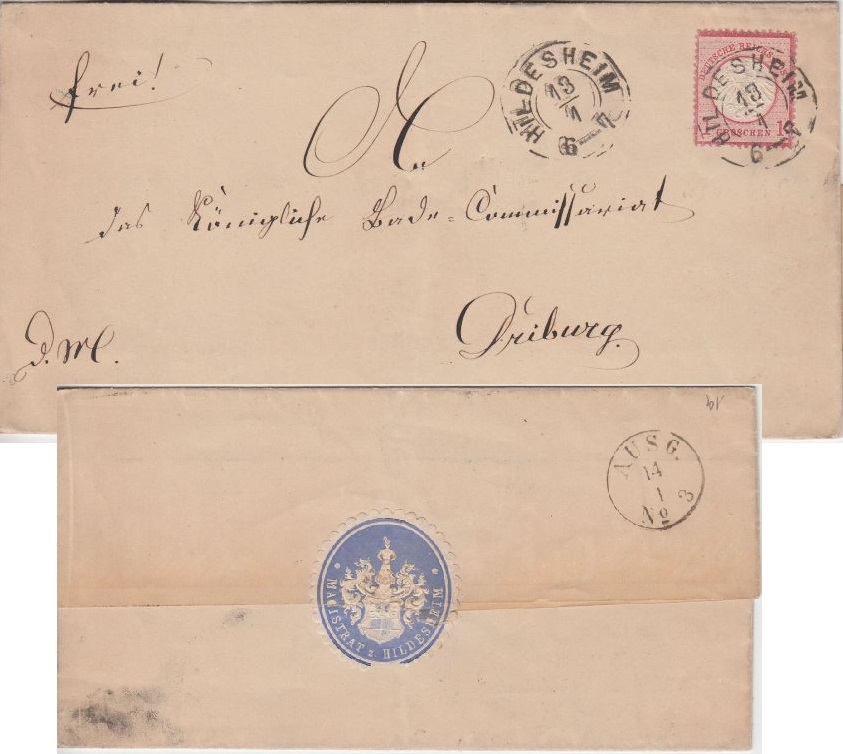 frei!
HILDESHEIM
13
1
6-7
DEUTSCHE REICHS
GROSCHEN 1
HILDESHEIM
13
1
6-7
An
das Königliche Bade-Commissariat
Driburg
d. M.
19
AUSG.
14
1
No 3
MAGISTRAT z. HILDESHEIM